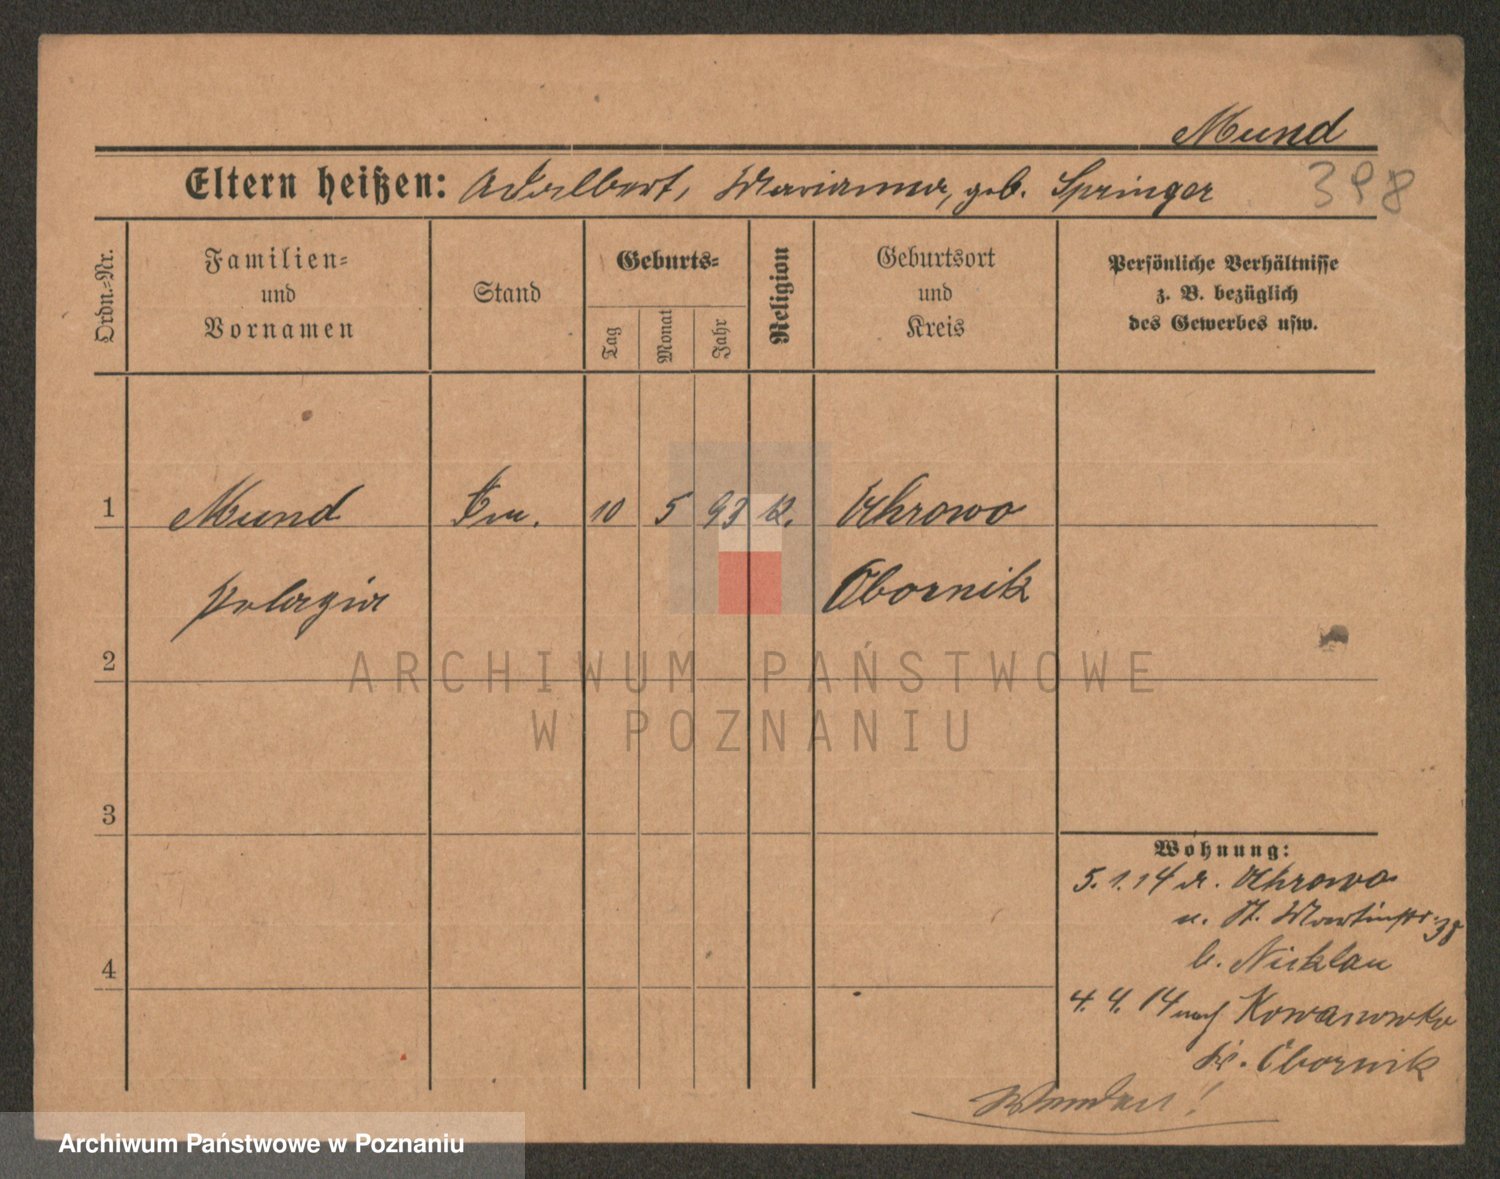 Mund
Eltern heißen: Adalbert, Marianna, geb. Springer
398
Ordn.-Nr.
Familien-
und
Vornamen
Stand
Geburts-
Tag
Monat
Jahr
Religion
Geburtsort
und
Kreis
Persönliche Verhältnisse
z. B. bezüglich
des Gewerbes usw.
1 Mund 10 5 93 k. Uhrowo
Pelagia Obornik
2
ARCHIWUM PAŃSTWOWE
W POZNANIU
3
Wohnung:
5.1.14 Uhrowo
n. St. Martinstr. 38
b. Nicklau
4
4.4.14 nach Kowanowko
Kr. Obornik
Wenden!
Archiwum Państwowe w Poznaniu